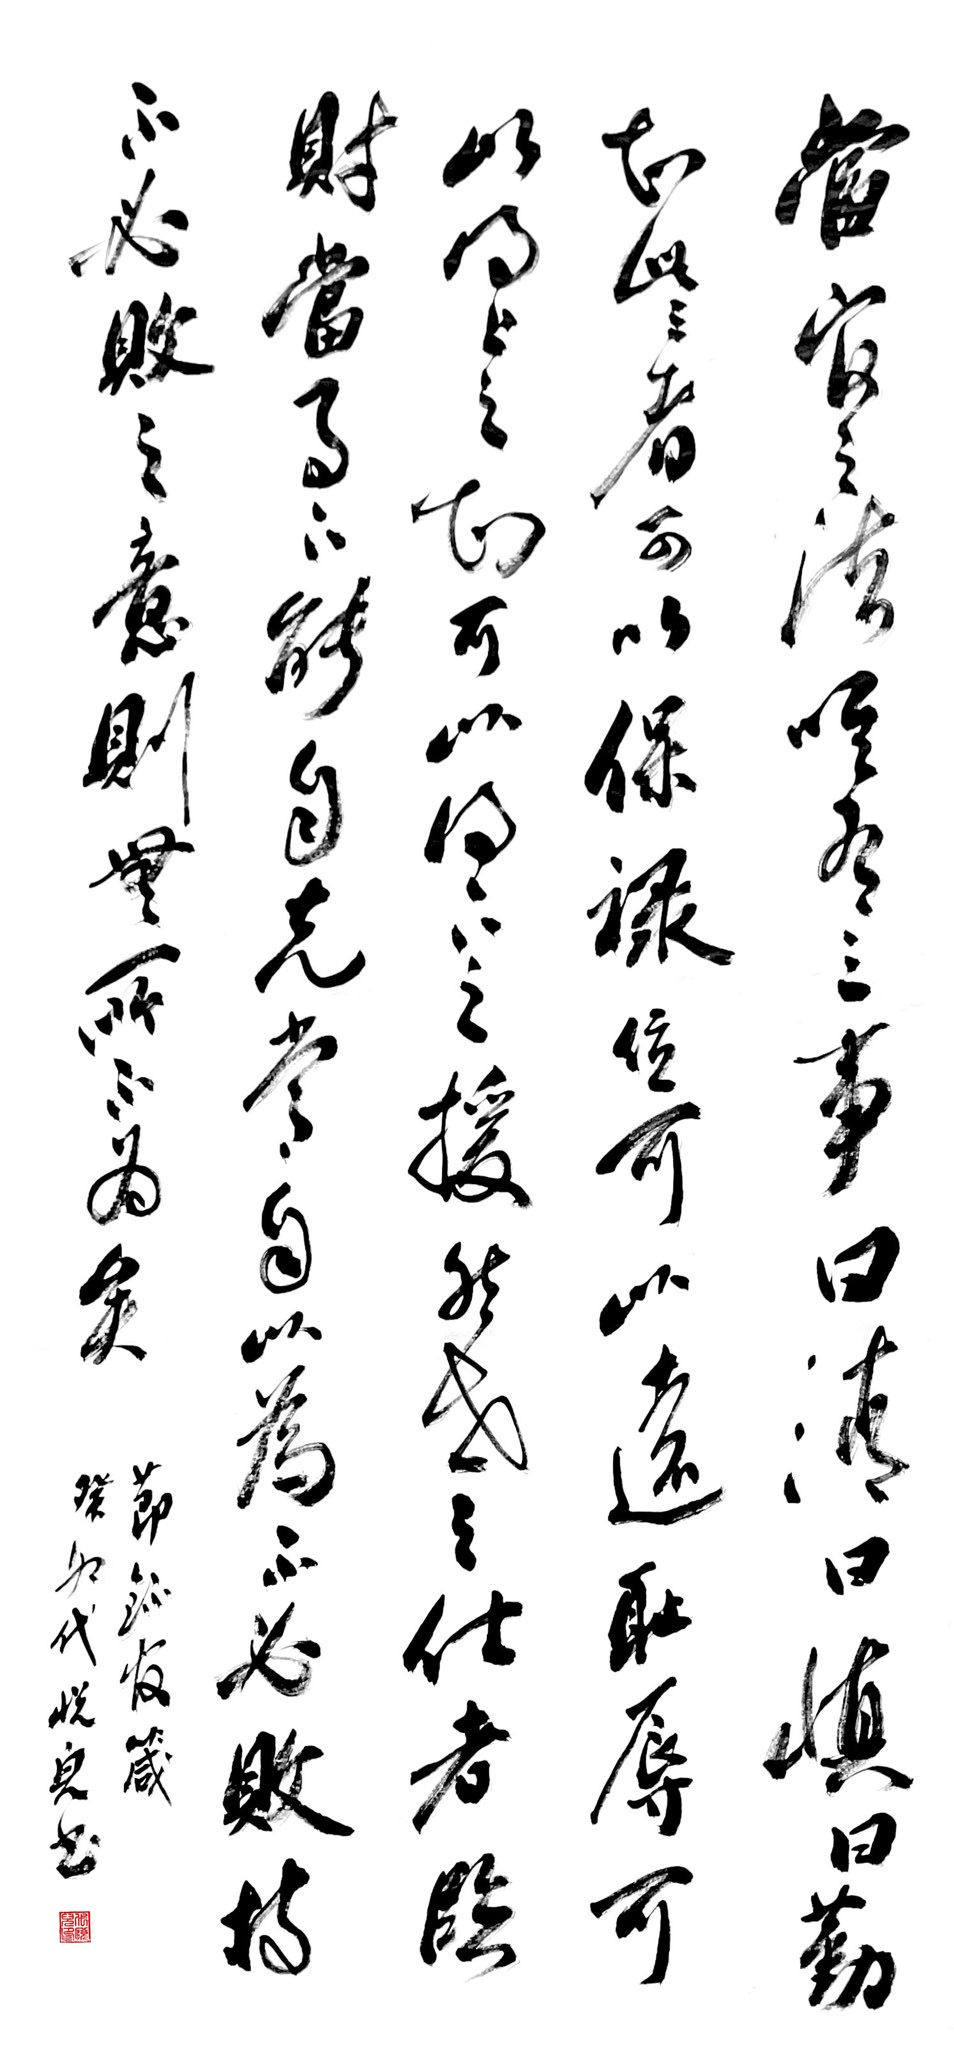 當官之法唯有三事曰清曰慎曰勤
知此三者可以保禄位可以遠耻辱可
以得上之知可以得下之援然世之仕者臨
財當事不能自克常自以為不必敗持
不必敗之意則無所不为矣
節録官箴
癸卯代悦书